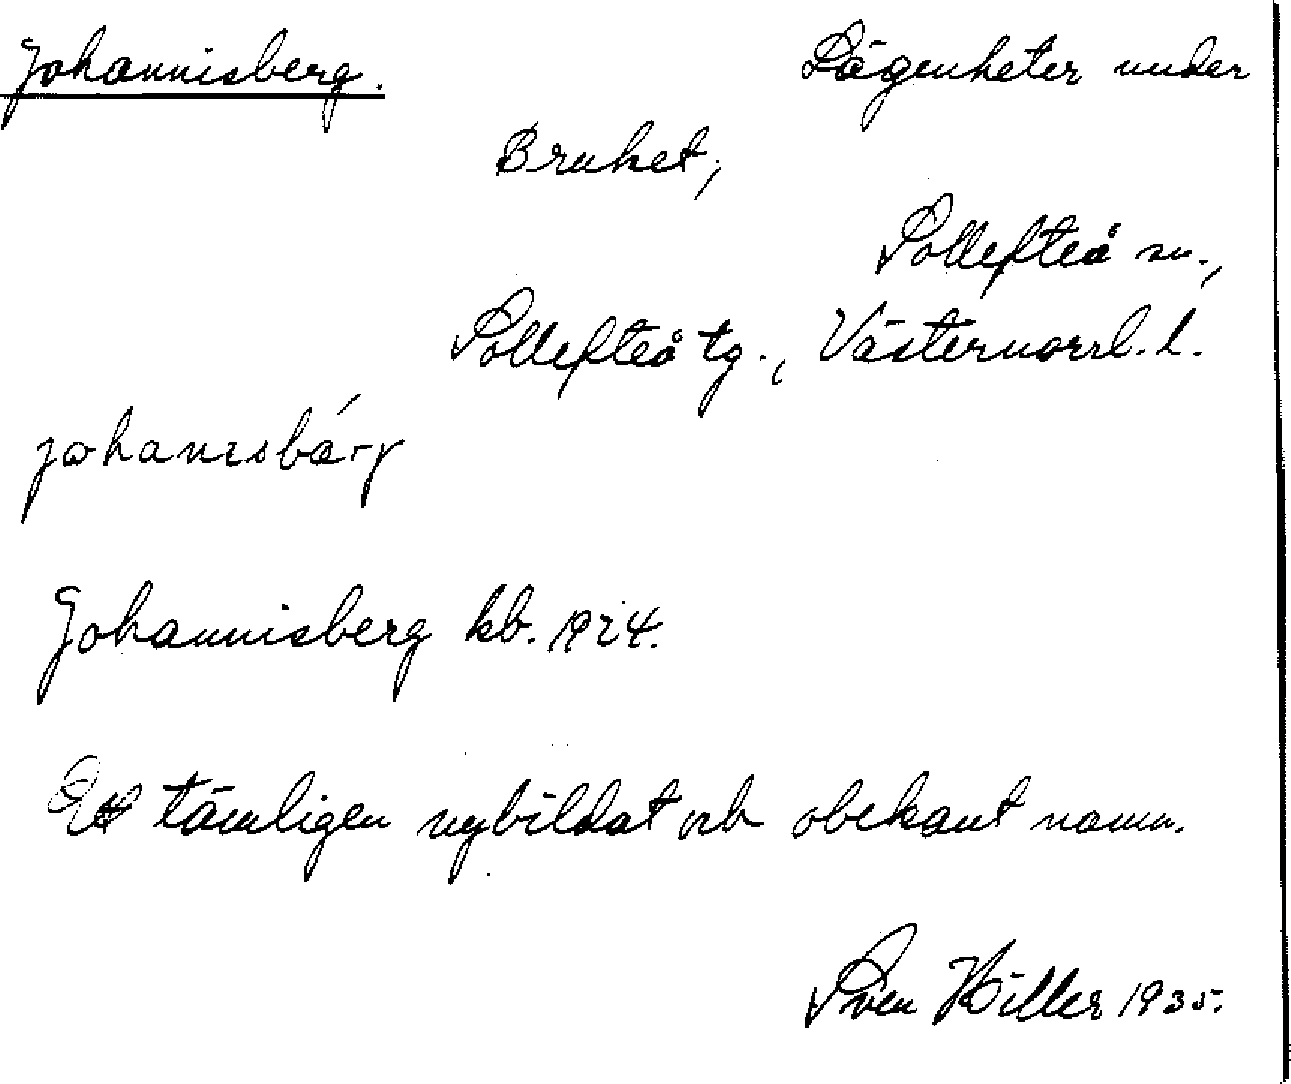 Johannisberg. Lägenheter under
Bruket,
Sollefteå sn.,
Sollefteå tg., Västernorrl. l.
johanɩsbá̄rɣ
Johannisberg kb. 1924.
Ett tämligen nybildat och obekant namn.
Sven Hiller 1935.